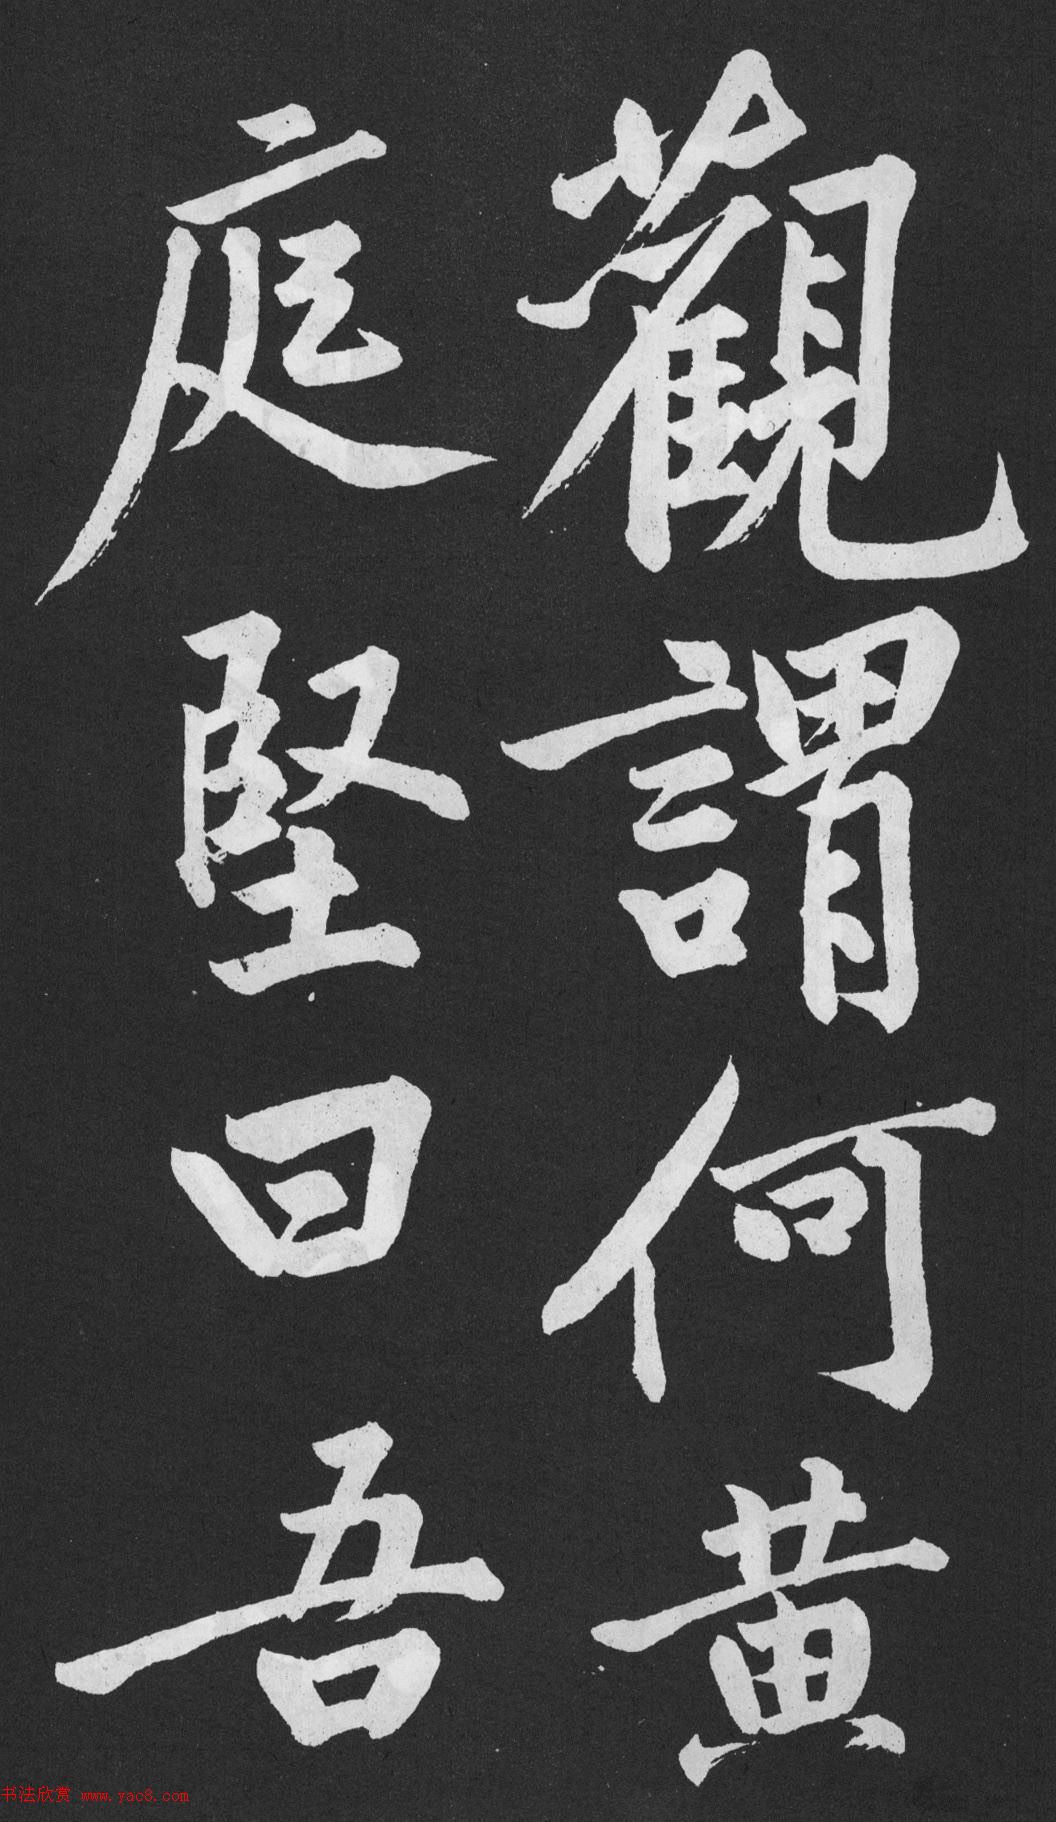 觀謂何黄
庭堅曰吾
书法欣赏 www.yac8.com